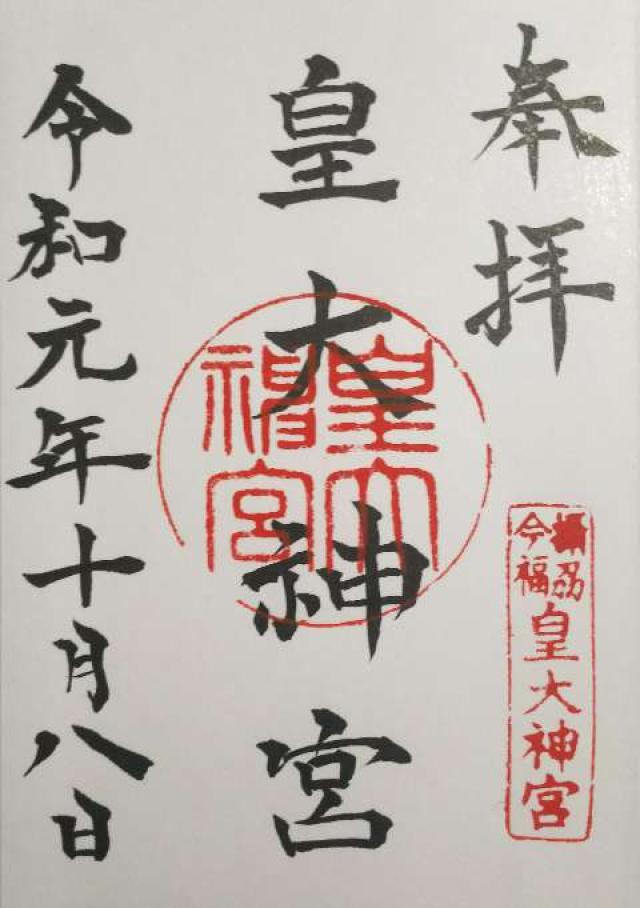 奉拝
摂刕
今福
皇大神宮
皇大神宮
皇大神宮
令和元年十月八日